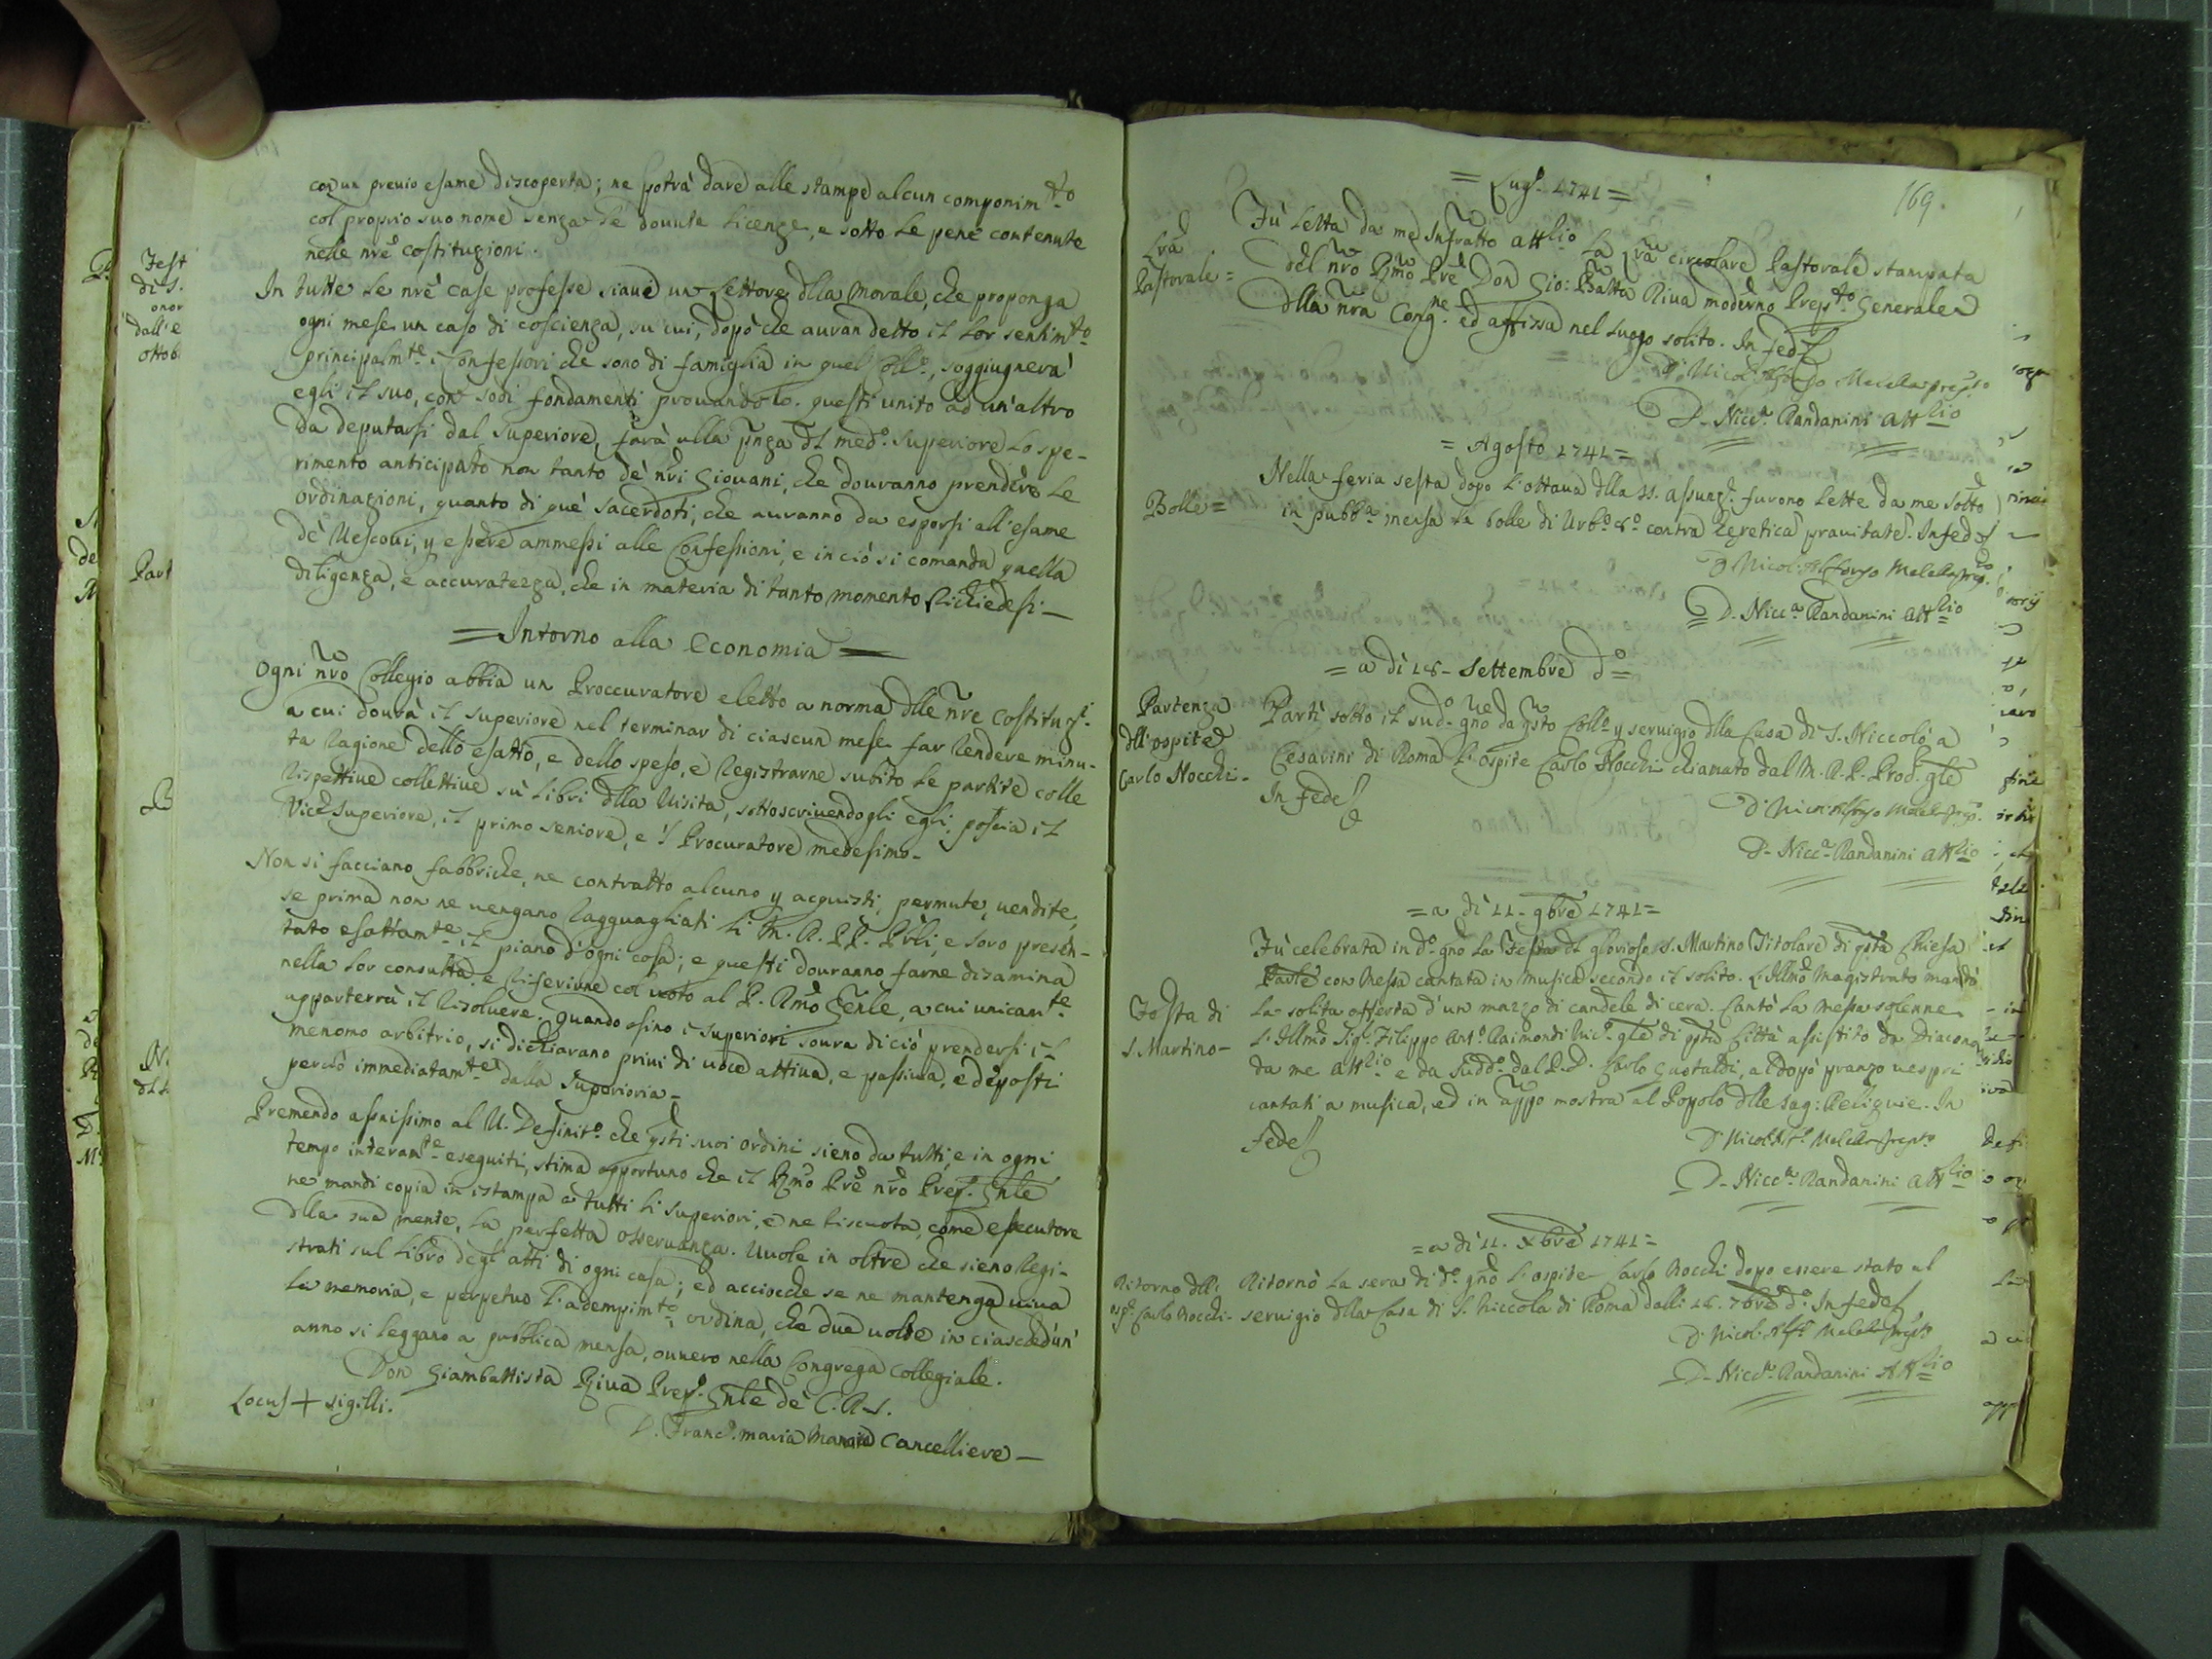 con un previo esame discoperta; ne potrà dare alle stampe alcun componim.to
col proprio suo nome senza le douute licenze, e sotto le pene contenute
nelle nre costituzioni.
In tutte le nre case professe siaui un Lettore dlla Morale, che proponga
ogni mese un caso di coscienza, su cui, dopo che auran detto il lor sentim.to
principalm.te i Confessori che sono di famiglia in quel Coll.o, soggiugnerà
egli il suo, con sodi fondamenti prouandolo. questi unito ad un'altro
da deputarsi dal Superiore, farà alla pnza dl med.o Superiore lo spe-
rimento anticipato non tanto de' nri Giouani, che douranno prendere le
ordinazioni, quanto di que' Sacerdoti, che auranno da esporsi all'esame
de' Vescoui, p essere ammessi alle Confessioni, e in ciò si comanda quella
diligenza, e accuratezza, che in materia di tanto momento richiedesi —
= Intorno alla Economia =
Ogni nro Collegio abbia un Proccuratore eletto a norma dlle nre Costituz.i
a cui dourà il Superiore nel terminar di ciascun mese far rendere minu-
ta ragione dello esatto, e dello speso, e registrarne subito le partite colle
rispettiue collettiue sù libri dlla Uisita, sottoscriuendogli egli, poscia il
Vice Superiore, il primo seniore, e 'l Procuratore medesimo -
Non si facciano fabbriche, ne contratto alcuno p acquisti, permute, uendite,
se prima non ne uengano ragguagliati li M. R. P.P. Prli, e loro presen-
tato esattam.te il piano d'ogni cosa; e questi douranno farne disamina
nella lor consulta, e riferirne col uoto al P. Rmo Gnle, a cui unicam.te
apparterrà il risoluere. Quando osino i superiori soura di ciò prendersi il
menomo arbitrio, si dichiarano priui di uoce attiua, e passiua, e deposti
perciò immediatam.te dalla Superioria -
Premendo assaissimo al U. Definit.o che qsti suoi ordini sieno da tutti, e in ogni
tempo interam.te eseguiti, stima opportuno che il Rmo Pre nro Prep.o Gnle
ne mandi copia in istampa a tutti li Superiori, e ne riscuota, come esecutore
dlla sua mente, la perfetta osseruanza. Uuole in oltre che sieno regi-
strati sul libro degl'atti di ogni casa; ed acciocche se ne mantenga uiua
la memoria, e perpetuo l'adempim.to, ordina, che due uolte in ciaschedun'
anno si leggano a pubblica mensa, ouuero nella Congrega Collegiale.
Don Giambattista Riua Prep.o Gnle de C.R.S.
Locus + sigilli.
D. Franc.o Maria Cancelliere —
169.
= Lug.o 1741 =
Lra
Pastorale =
Fù letta da me Infratto Att.rio la Lra circolare Pastorale stampata
del nro Rmo Pre Don Gio: Batta Riua moderno Prep.to Generale
dlla nra Cong.ne ed affissa nel luogo solito. In fede
D. Nicol. Alfonso Melella Prep.to
D. Nicc.a Randanini Att.rio
= Agosto 1741 =
Bolle =
Nella feria sesta dopo l'ottaua dlla SS. Assunz.e furono lette da me sotto
in pubb.a mensa la bolle di Urb.o 8.o contra heretica prauitate. In fede
D. Nicol. Alfonso Melella Prep.to
D. Nicc.a Randanini Att.rio
= a di 18 - Settembre d.o =
Partenza
dll'ospite
Carlo Nocchi -
Partì sotto il sud.o gno da qsto Coll.o p seruigio dlla Casa di S. Niccolò a
Cesarini di Roma l'ospite Carlo Nocchi chiamato dal M. R. P. Proc.e gle
In fede
D. Nicol. Alfonso Melella Prep.to
D. Nicc.a Randanini Att.rio
= a di 11 - 9bre 1741 =
Festa di
S. Martino -
Fù celebrata in d.o gno la Festa dl glorioso S. Martino Titolare di qsta Chiesa
con Messa cantata in musica secondo il solito. L'Illmo Magistrato mandò
la solita offerta d'un mazzo di candele di cera. Cantò la Messa solenne
l'Illmo Sig.r Filippo Ant.o Raimondi Vic.o gle di qsta Città assistito da Diacono
da me Att.rio e da Sudd.o dal P. D. Carlo Gustaldi, a dopo pranzo uespri
cantati a musica, ed in appo mostra al Popolo dlle Sag: Reliquie. In
fede
D. Nicol. Alf.o Melella Prep.to
D. Nicc.a Randanini Att.rio
= a di 11. Xbre 1741 =
Ritorno dll'
osp.e Carlo Nocchi -
Ritornò la sera di d.o gno l'ospite Carlo Nocchi dopo essere stato al
seruigio dlla Casa di S. Niccola di Roma dalli 18. 7bre d.o In fede
D. Nicol. Alf.o Melella Prep.to
D. Nicc.a Randanini Att.rio